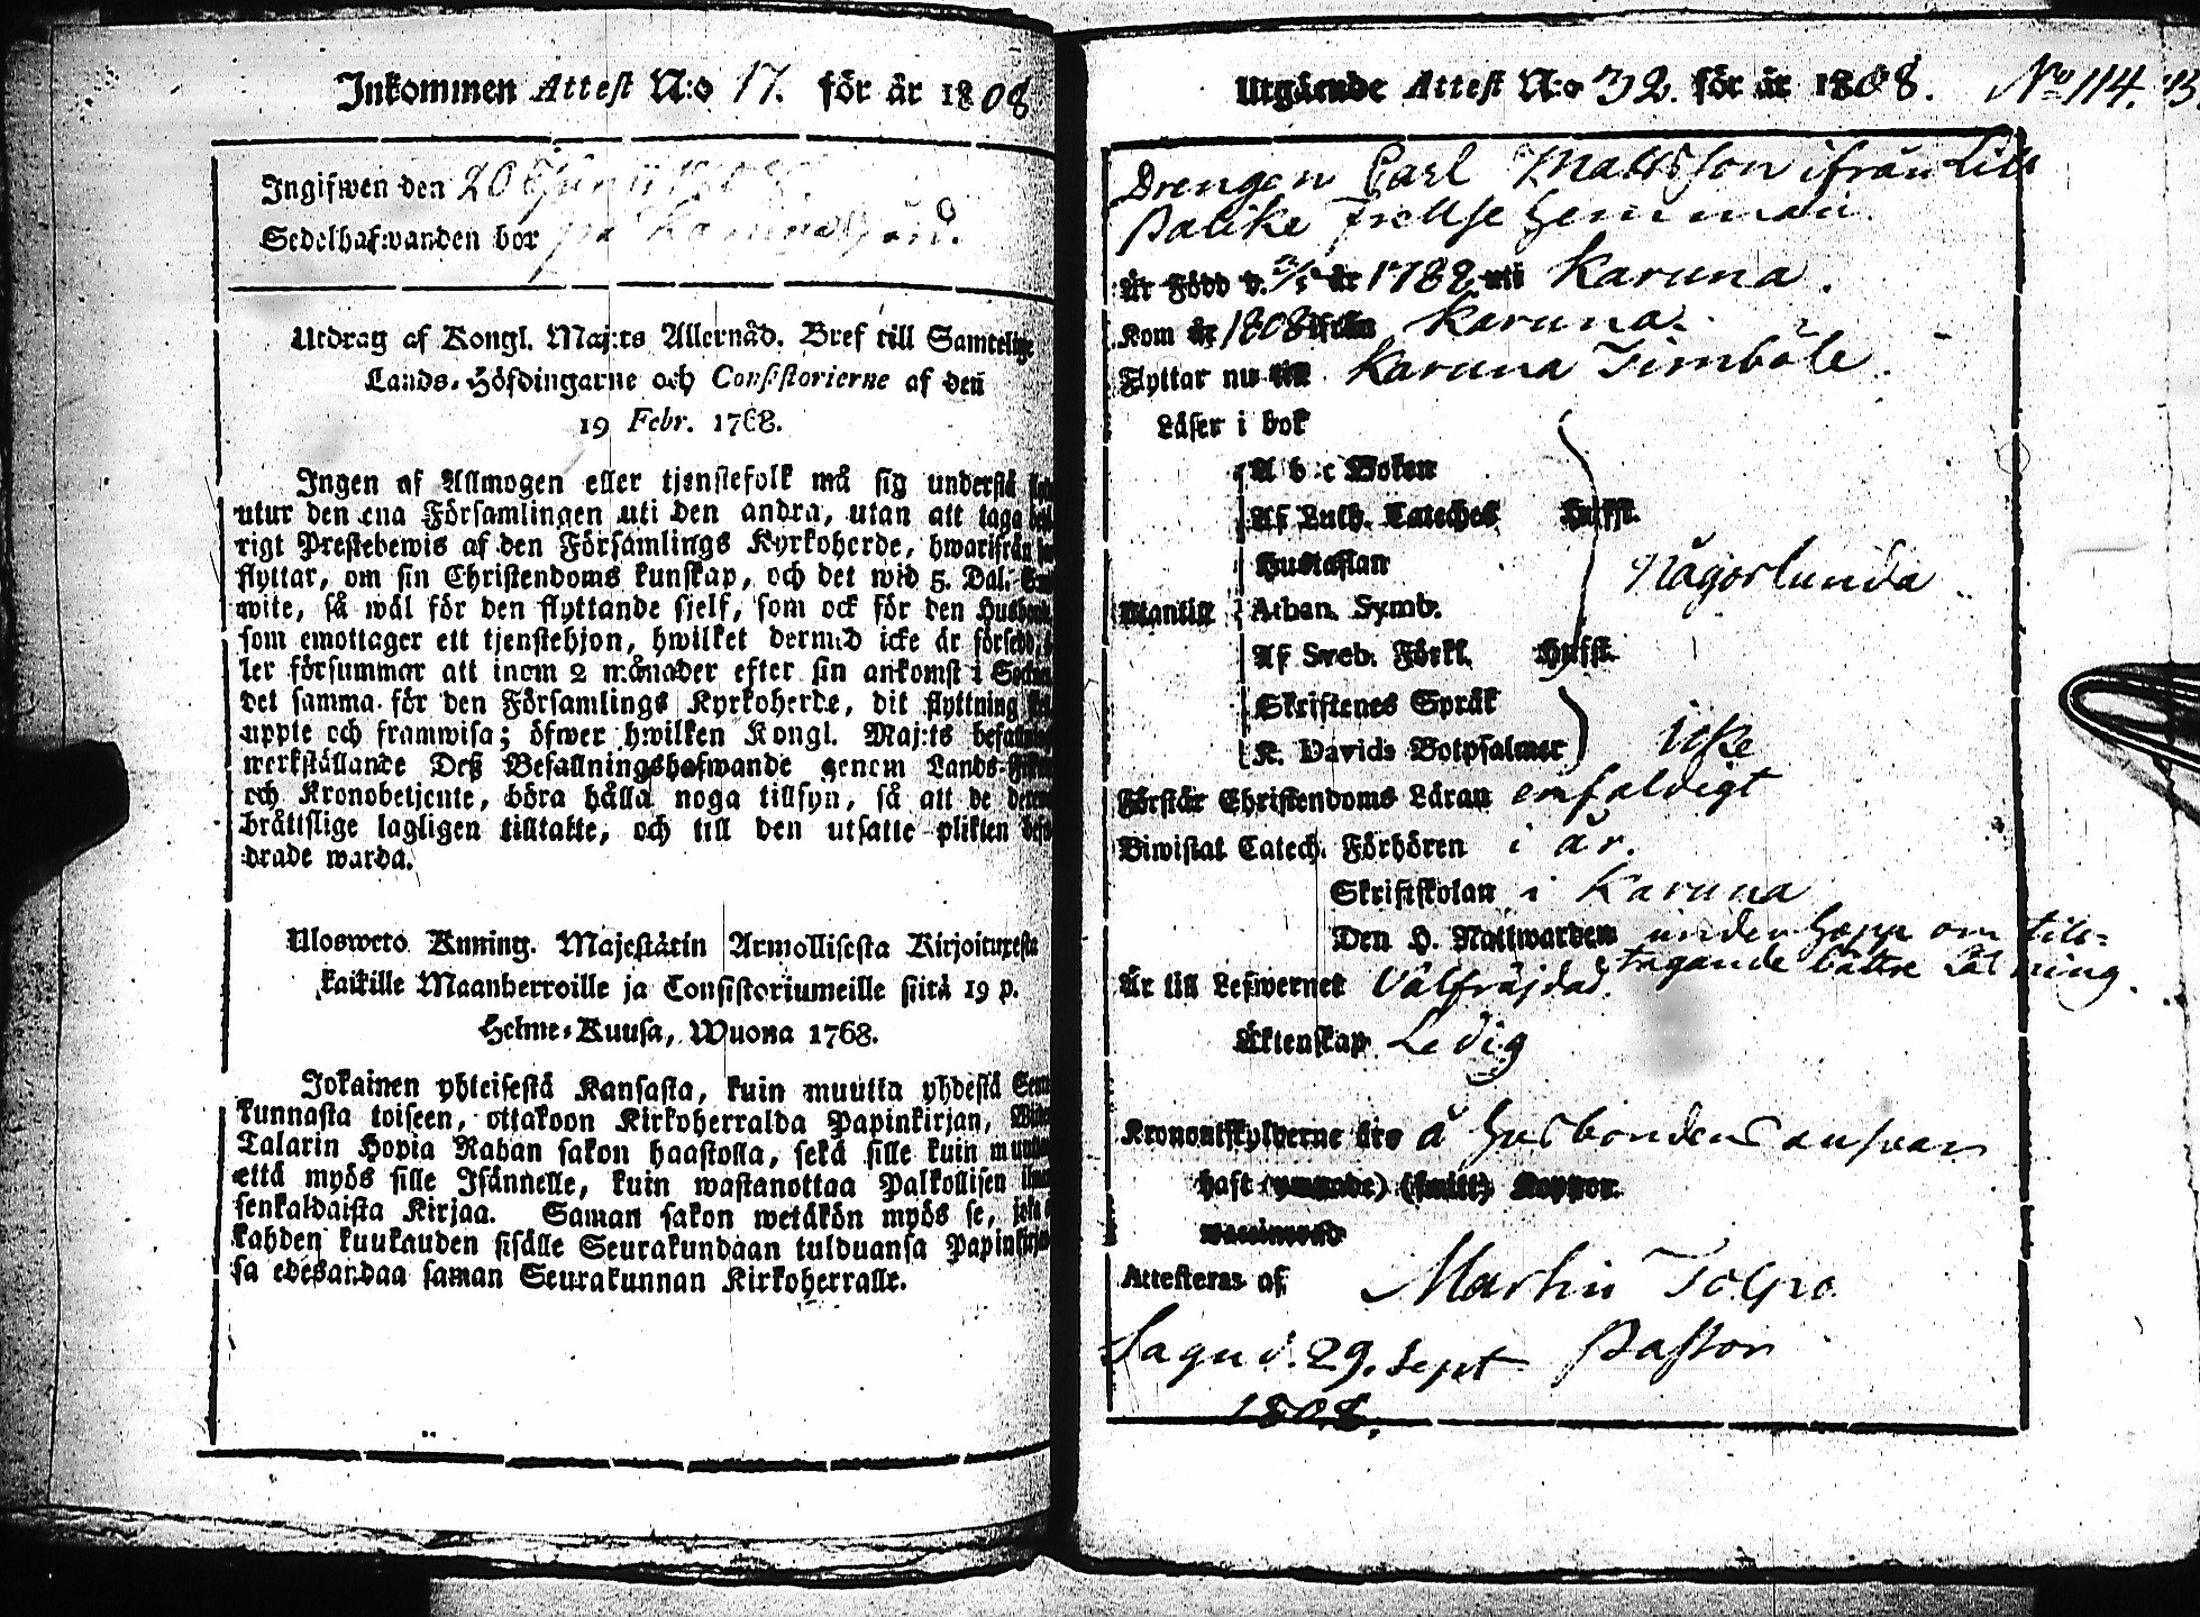 Inkommen Attest N:o 17. för år 1808
Ingifwen den 20
Sedelhafwanden bor på
Utdrag af Kongl. Maj:ts Allernåd. Bref till Samtelige
Lands-Höfdingarne och Consistorierne af den
19 Febr. 1768.
Ingen af Allmogen eller tjenstefolk må sig understå
utur den ena Församlingen uti den andra, utan att taga
rigt Prestebewis af den Församlings Kyrkoherde, hwarifrån
flyttar, om sin Christendoms kunskap, och det wid 5. Dal.
wite, så wäl för den flyttande sjelf, som ock för den
som emottager ett tjenstehjon, hwilket dermed icke är
ler försummar att inom 2 månader efter sin ankomst i
det samma för den Församlings Kyrkoherde, dit flyttning
uppte och framwisa; öfwer hwilken Kongl. Maj:ts
werkställande Deß Befallningshafwande genom Lands-
och Kronobetjente, böra hålla noga tillsyn, så att de
bråttslige lagligen tilltalte, och till den utsatte plikten
drade warda.
Ulosweto Kuning. Majestätin Armollisesta Kirjoituxesta
kaikille Maanherroille ja Consistoriumeille siitä 19 p.
Helme-Kuusa, Wuona 1768.
Jokainen yhteisestä Kansasta, kuin muutta yhdestä
kunnasta toiseen, ottakoon Kirkoherralda Papinkirjan,
Talarin Hopia Rahan sakon haastolla, sekä sille kuin
että myös sille Isännelle, kuin wastanottaa Palkollisen
senkaldaista Kirjaa. Saman sakon wetäkön myös se,
kahden kuukauden sisälle Seurakundaan tulduansa
sa edesandaa saman Seurakunnan Kirkoherralle.
Utgående Attest N:o 32. för år 1808. No 114.
Drengen Carl Mattsson ifrån Lill
Palike Frellse Hemman.
Är Född d. år 1788 uti Karuna.
Kom år 1808 ifrån Karuna.
Flyttar nu till Karuna Timböle.
Läser i bok
A b c Boken
Af Luth. Cateches Hufst.
Hustaflan någorlunda
Utantill Athan. Symb.
Af Sweb. Förkl. Hufst.
Skriftenes Språk
K. Davids Botpsalmer icke
Förstår Christendoms Läran enfaldigt
Biwistat Catech. Förhören i år.
Skriftskolan i Karuna
Den H. Nattwarden under hopp om till-
tagande bättre Läsning.
Är till Lefwernet Välfräjdad.
Äktenskap Ledig
Kronoutskylderne äro å Husbondens answar
haft Koppor.
Attesteras af Martin Tolpo
Sagu d. 29. Sept Pastor
1808.